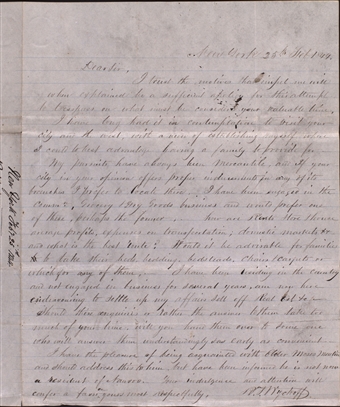 New York 26th Feb 1844
Dear Sir,
I trust the motives that impel me
when explained be a sufficient apology for this attempt
to trespass on what must be considered your valuable time.
I have long had it in contemplation to visit your
city and the west, with a view of establishing myself where
it could be best advantage having a family to provide for
My pursuits have always been Mercantile, and if your
city in your opinion offers proper inducement in any of its
branches I prefer to locate there. I have been engaged in the
Comn & Grocery & Dry Goods business and would prefer one
of these, perhaps the former. how are Rents Store
average profits, expenses on transportation, domestic
and what is the best route? Would it be advisable for families
to take their beds bedding bedsteads, Chairs Carpets or
which or any of them. I have been residing in the Country
and not engaged in business for several years, am now here
endeavoring to settle up my affairs sell off Real Est &c
Should these enquiries or rather the answer to them take too
much of your time will you hand them over to some one
who will answer them understandingly & as early as convenient
I have the pleasure of being acquainted with Elder Moses
and should address this to him, but have been informed he is not now
a resident of Nauvoo. Your indulgence and attention will
confer a favor yours most respectfully,
New York Feb